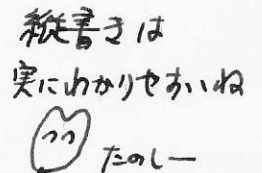 縦書きは
実にわかりやすいね
たのしー